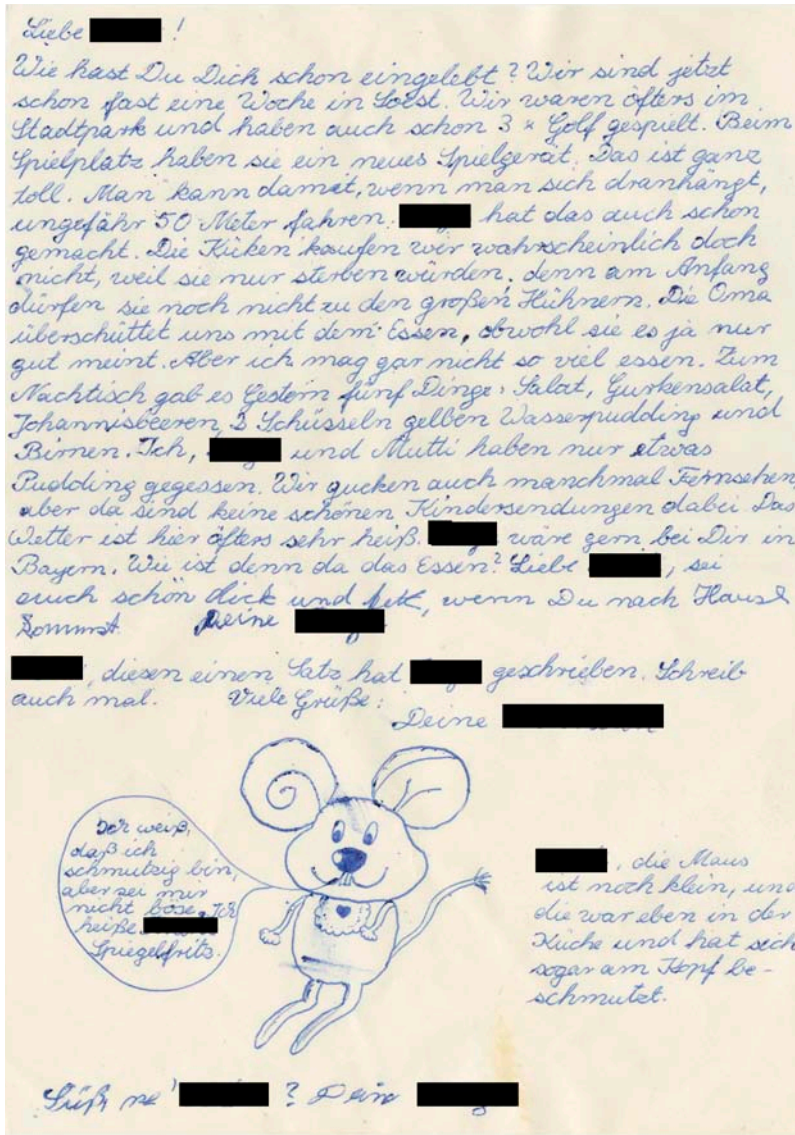 Liebe !
Wie hast Du Dich schon eingelebt? Wir sind jetzt
schon fast eine Woche in Soest. Wir waren öfters im
Stadtpark und haben auch schon 3 x Golf gespielt. Beim
Spielplatz haben sie ein neues Spielgerät. Das ist ganz
toll. Man kann damit, wenn man sich dranhängt,
ungefähr 50 Meter fahren. hat das auch schon
gemacht. Die Kücken kaufen wir wahrscheinlich doch
nicht, weil sie nur sterben würden, denn am Anfang
dürfen sie noch nicht zu den großen Hühnern. Die Oma
überschüttet uns mit dem Essen, obwohl sie es ja nur
gut meint. Aber ich mag gar nicht so viel essen. Zum
Nachtisch gab es Gestern fünf Dinge: Salat, Gurkensalat,
Johannisbeeren, 3 Schüsseln gelben Wasserpudding und
Birnen. Ich, und Mutti haben nur etwas
Pudding gegessen. Wir gucken auch manchmal Fernsehen,
aber da sind keine schönen Kindersendungen dabei. Das
Wetter ist hier öfters sehr heiß. wäre gern bei Dir in
Bayern. Wie ist denn da das Essen? Liebe , sei
auch schön dick und fett, wenn Du nach Hause
kommst. Deine
, diesen einen Satz hat geschrieben. Schreib
auch mal. Viele Grüße:
Deine
Ich weiß,
daß ich
schmutzig bin,
aber sei mir
nicht böse. Ich
heiße
Spiegelfritz.
, die Maus
ist noch klein, und
die war eben in der
Küche und hat sich
sogar am Kopf be-
schmutzt.
Süß ne' ? Dein